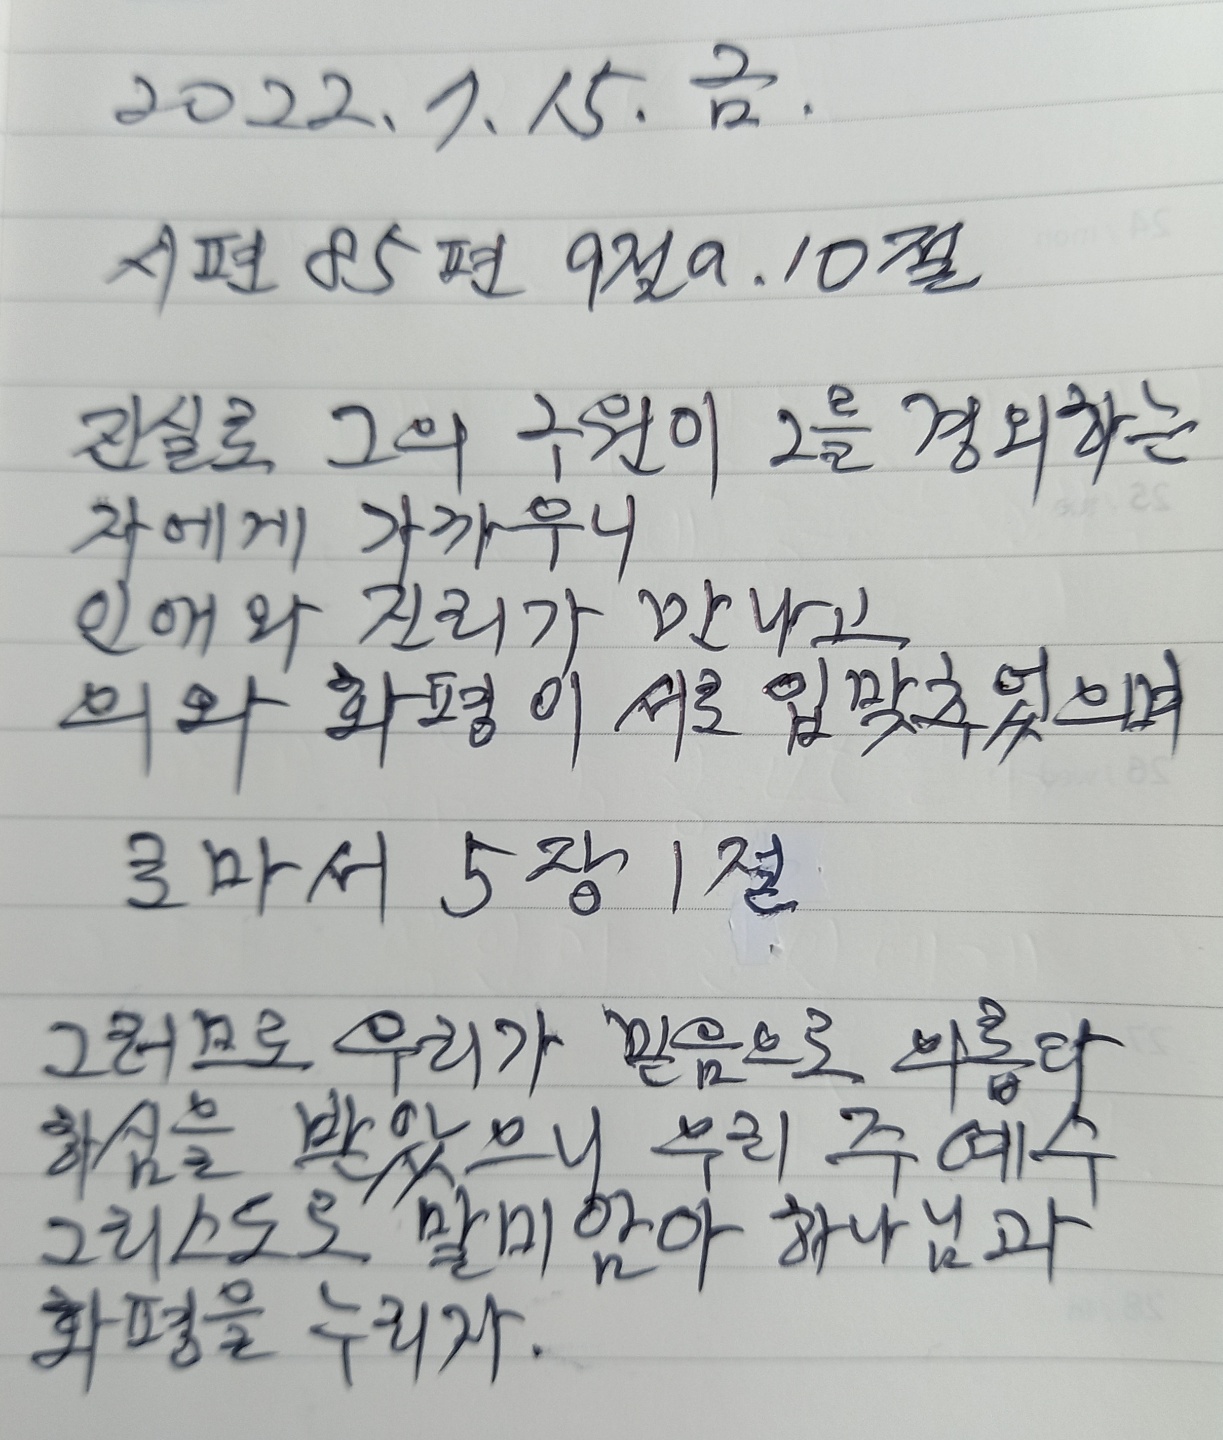 2022. 7. 15. 금.
시편 85편 9절a. 10절
진실로 그의 구원이 그를 경외하는
자에게 가까우니
인애와 진리가 만나고
의와 화평이 서로 입맞추었으며
로마서 5장 1절
그러므로 우리가 믿음으로 의롭다
하심을 받았으니 우리 주 예수
그리스도로 말미암아 하나님과
화평을 누리자.